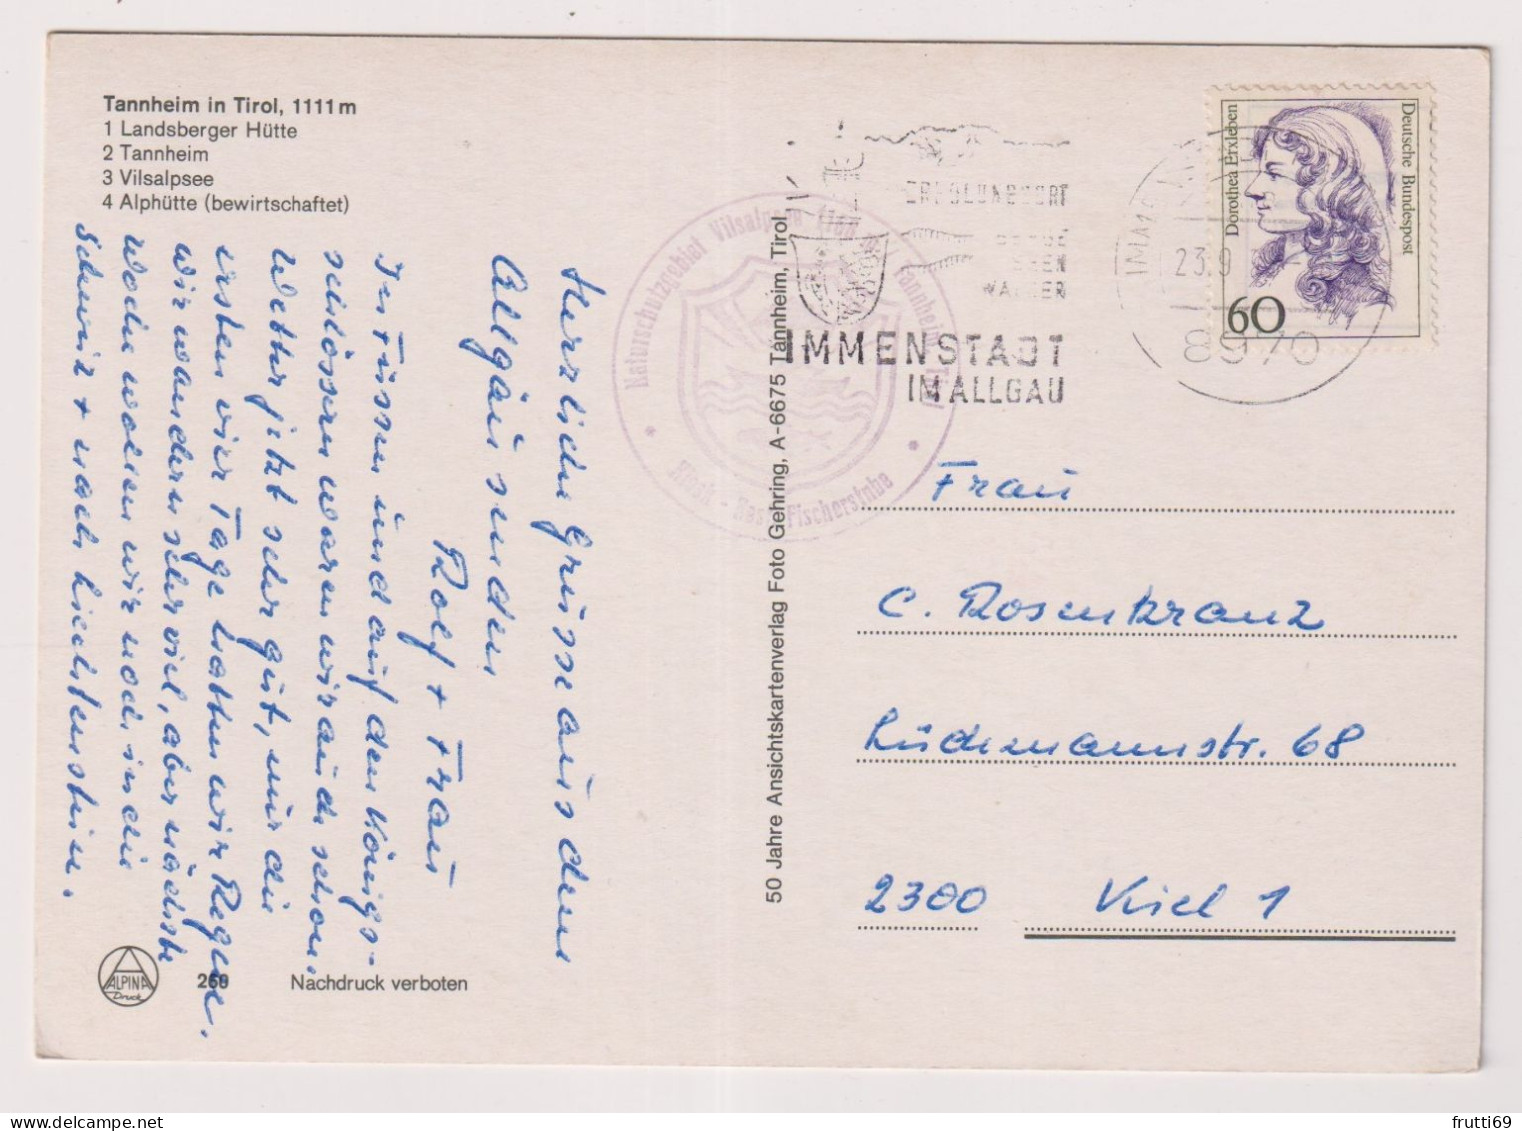 Tannheim in Tirol, 1111 m
1 Landsberger Hütte
2 Tannheim
3 Vilsalpsee
4 Alphütte (bewirtschaftet)
Herzliche Grüsse aus dem
Allgäu senden
Rolf + Frau
In Füssen und auf den Königs-
schlössern waren wir auch schon.
Wetter jetzt sehr gut, nur die
ersten vier Tage hatten wir Regen.
wir wandern sehr viel, aber nächste
Woche wollen wir noch in die
Schweiz + nach Liechtenstein.
ALPINA
Druck
260
Nachdruck verboten
50 Jahre Ansichtskartenverlag Foto Gehring, A-6675 Tannheim, Tirol
Naturschutzgebiet Vilsalpsee Tannheim Tirol
Fischerstube
ERHOLUNGSORT
WASSER
IMMENSTADT
IM ALLGÄU
23.9
8970
Dorothea Erxleben
Deutsche Bundespost
60
Frau
C. Rosenkranz
Lüdemannstr. 68
2300 Kiel 1
frutti69